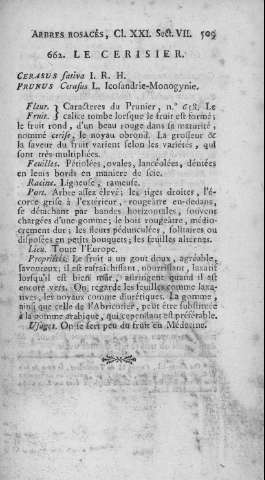 ARBRES ROSACÉS, Cl. XXI. Sect. VII. 509
662. LE CERISIER.
CERASUS sativa I. R. H.
PRUNUS Cerasus L. Icosandrie-Monogynie.
Fleur. } Caracteres du Prunier, n.° 658. Le
Fruit. } calice tombe lorsque le fruit est formé;
le fruit rond, d'un beau rouge dans sa maturité,
nommé cerise, le noyau obrond. La grosseur &
la saveur du fruit varient selon les variétés, qui
sont très-multipliées.
Feuilles. Pétiolées, ovales, lancéolées, dentées
en leurs bords en maniere de scie.
Racine. Ligneuse, rameuse.
Port. Arbre assez élevé; les tiges droites, l'é-
corce grise à l'extérieur, rougeâtre en-dedans,
se détachant par bandes horizontales, souvent
chargées d'une gomme; le bois rougeâtre, médio-
crement dur; les fleurs pédunculées, solitaires ou
disposées en petits bouquets; les feuilles alternes.
Lieu. Toute l'Europe.
Propriétés. Le fruit a un gout doux, agréable,
savoureux; il est rafraîchissant, nourrissant, laxant
lorsqu'il est bien mûr, astringent quand il est
encore vert. On regarde les feuilles comme laxa-
tives, les noyaux comme diurétiques. La gomme,
ainsi que celle de l'Abricotier, peut être substituée
à la gomme arabique, qui cependant est préférable.
Usages. On se sert peu du fruit en Médecine.